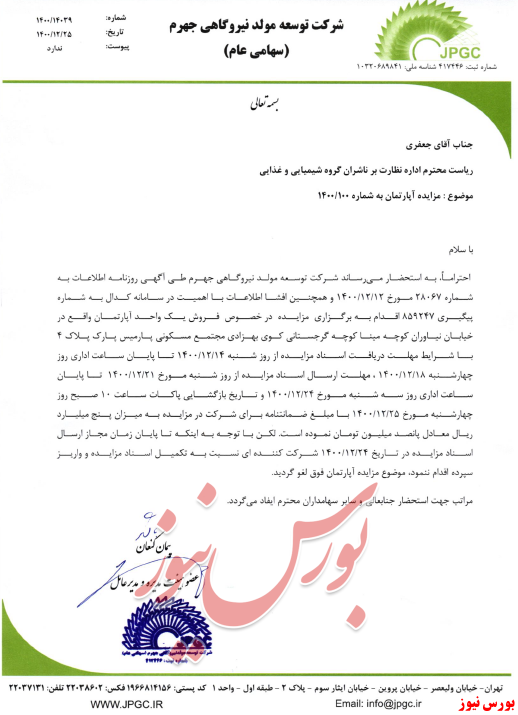 شرکت توسعه مولد نیروگاهی جهرم
(سهامی عام)
شماره: ۱۴۰۰/۱۴۰۳۹
تاریخ: ۱۴۰۰/۱۲/۲۵
پیوست: ندارد
JPGC
شماره ثبت: ۴۱۷۴۴۶ شناسه ملی: ۱۰۳۲۰۶۸۹۸۴۱
بسمه تعالی
جناب آقای جعفری
ریاست محترم اداره نظارت بر ناشران گروه شیمیایی و غذایی
موضوع : مزایده آپارتمان به شماره ۱۴۰۰/۱۰۰
با سلام
احتراماً، به استحضار می‌رساند شرکت توسعه مولد نیروگاهی جهرم طی آگهی روزنامه اطلاعات به
شماره ۲۸۰۶۷ مورخ ۱۴۰۰/۱۲/۱۲ و همچنین افشا اطلاعات با اهمیت در سامانه کدال به شماره
پیگیری ۸۵۹۲۴۷ اقدام به برگزاری مزایده در خصوص فروش یک واحد آپارتمان واقع در
خیابان نیاوران کوچه مینا کوچه گرجستانی کوی بهزادی مجتمع مسکونی پارمیس پارک پلاک ۴
با شرایط مهلت دریافت اسناد مزایده از روز شنبه ۱۴۰۰/۱۲/۱۴ تا پایان ساعت اداری روز
چهارشنبه ۱۴۰۰/۱۲/۱۸ ، مهلت ارسال اسناد مزایده از روز شنبه مورخ ۱۴۰۰/۱۲/۲۱ تا پایان
ساعت اداری روز سه شنبه مورخ ۱۴۰۰/۱۲/۲۴ و تاریخ بازگشایی پاکات ساعت ۱۰ صبح روز
چهارشنبه مورخ ۱۴۰۰/۱۲/۲۵ با مبلغ ضمانتنامه برای شرکت در مزایده به میزان پنج میلیارد
ریال معادل پانصد میلیون تومان نموده است. لکن با توجه به اینکه تا پایان زمان مجاز ارسال
اسناد مزایده در تاریخ ۱۴۰۰/۱۲/۲۴ شرکت کننده ای نسبت به تکمیل اسناد مزایده و واریز
سپرده اقدام ننمود، موضوع مزایده آپارتمان فوق لغو گردید.
مراتب جهت استحضار جنابعالی و سایر سهامداران محترم ایفاد می‌گردد.
بورس نیوز
پیمان کنعان
عضو هیئت مدیره و مدیرعامل
شرکت توسعه مولد نیروگاهی جهرم (سهامی عام)
شماره ثبت: ۴۱۷۴۴۶
تهران- خیابان ولیعصر - خیابان پروین - خیابان ایثار سوم - پلاک ۲ - طبقه اول - واحد ۱ کد پستی: ۱۹۶۶۸۱۴۱۵۶ فکس: ۲۲۰۳۸۶۰۲ تلفن: ۲۲۰۳۷۱۳۱
WWW.JPGC.IR
Email: info@jpgc.ir
بورس نیوز